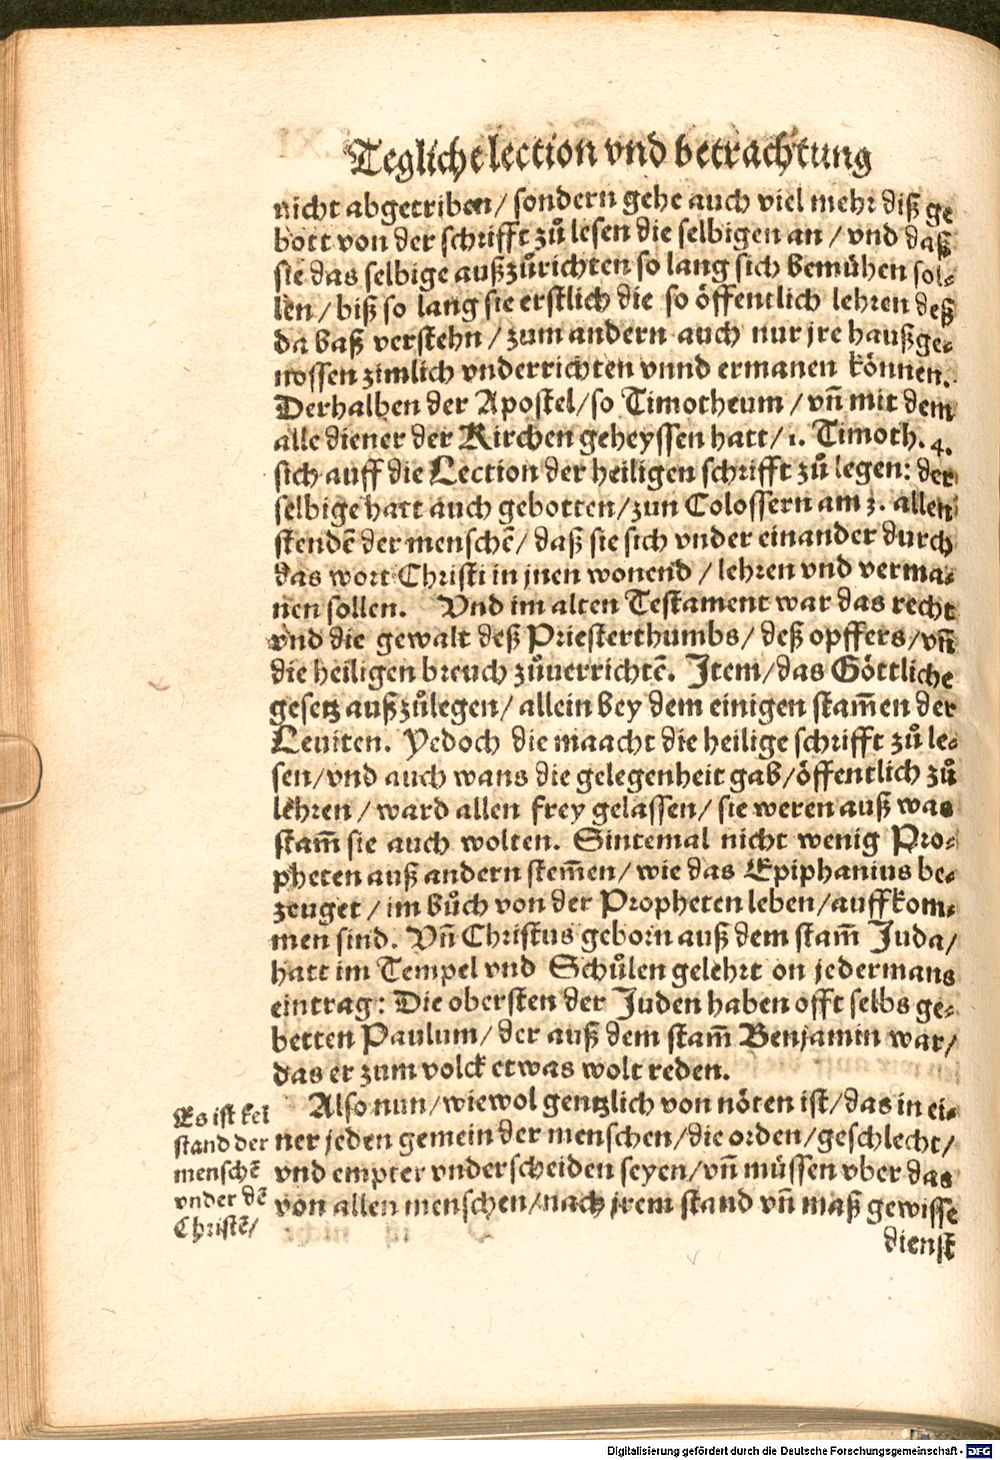 Teglich election vnd betrachtung
nicht abgetriben/ sondern gehe auch viel mehr diß ge
bott von der schrifft zů lesen die selbigen an / vnd daß
sie das selbige außzůrichten so lang sich bemühen sol-
len / biß so lang sie erstlich die so öffentlich lehren deß
da baß verstehn / zum andern auch nur jre haußge-
nossen zimlich vnderrichten vnnd ermanen können.
Derhalben der Apostel/so Timotheum / vñ mit dem
alle diener der Kirchen geheyssen hatt/1. Timoth. 4.
sich auff die Lection der heiligen schrifft zů legen: der
selbige hatt auch gebotten/zun Colossern am 3. allen
stendẽ der menschẽ/ daß sie sich vnder einander durch
das wort Christi in jnen wonend / lehren vnd verma-
nen sollen. Vnd im alten Testament war das recht
vnd die gewalt deß Priesterthumbs/ deß opffers/vñ
die heiligen breuch zůuerrichtẽ. Item/das Göttliche
gesetz außzůlegen/ allein bey dem einigen stam̃en der
Leuiten. Yedoch die maacht die heilige schrifft zů le-
sen/vnd auch wans die gelegenheit gab/öffentlich zů
lehren / ward allen frey gelassen/ sie weren auß was
stam̃ sie auch wolten. Sintemal nicht wenig Pro-
pheten auß andern stem̃en/ wie das Epiphanius be-
zeuget / im bůch von der Propheten leben/auffkom-
men sind. Vñ Christus geborn auß dem stam̃ Juda/
hatt im Tempel vnd Schůlen gelehrt on jedermans
eintrag: Die obersten der Juden haben offt selbs ge-
betten Paulum/ der auß dem stam̃ Benjamin war/
das er zum volck etwas wolt reden.
Also nun/wiewol gentzlich von nöten ist/das in ei-
ner jeden gemein der menschen/die orden/geschlecht/
vnd empter vnderscheiden seyen/vñ müssen vber das
von allen menschen/nach jrem stand vñ maß gewisse
dienst
Es ist kei
stand der
menschẽ
vnder dẽ
Christẽ/
Digitalisierung gefördert durch die Deutsche Forschungsgemeinschaft - DFG